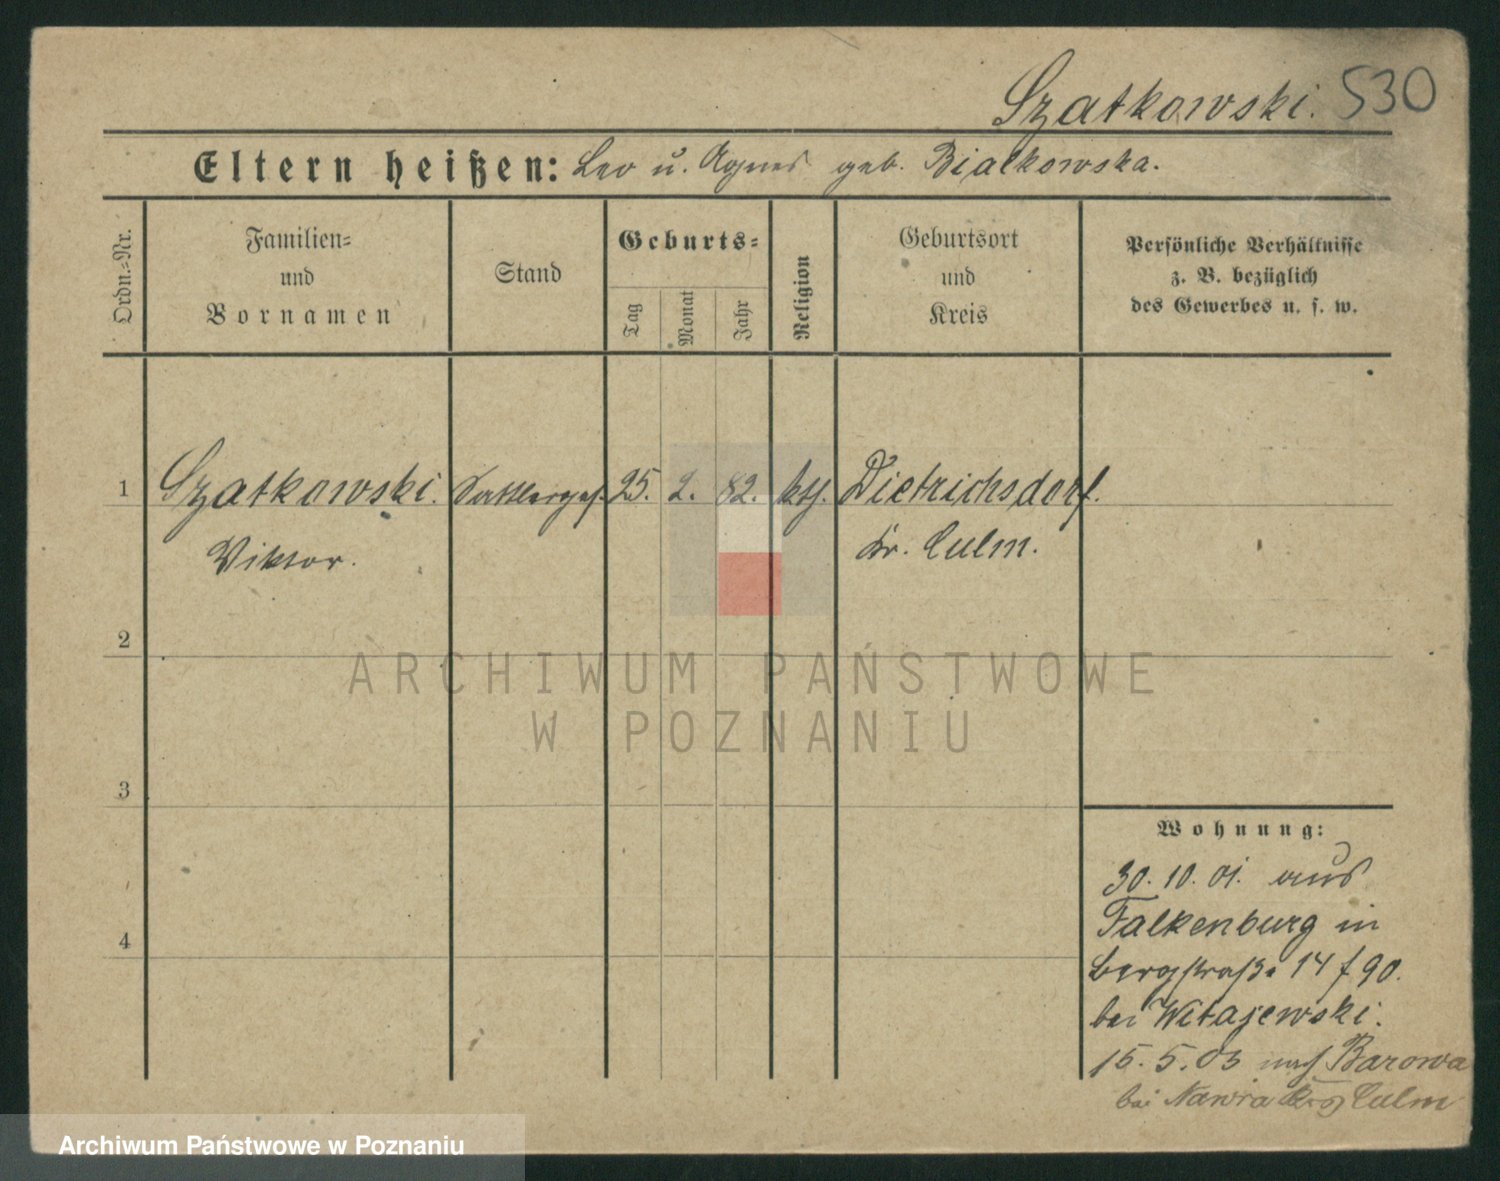 Szatkowski. 530
Eltern heißen: Leo u. Agnes geb. Bialkowska.
Ordn.-Nr.
Familien-
und
Vornamen
Stand
Geburts-
Tag
Monat
Jahr
Religion
Geburtsort
und
Kreis
Persönliche Verhältnisse
z. B. bezüglich
des Gewerbes u. s. w.
1 Szatkowski. Sattlerges. 25. 2. 82. kth. Dietrichsdorf.
Viktor. Kr. Culm.
2
ARCHIWUM PAŃSTWOWE
W POZNANIU
3
Wohnung:
30. 10. 01. aus
Falkenburg in
4
Bergstraße 14 f 90.
bei Witajewski.
15. 5. 03 nach Barowa
bei Nawra Culm
Archiwum Państwowe w Poznaniu